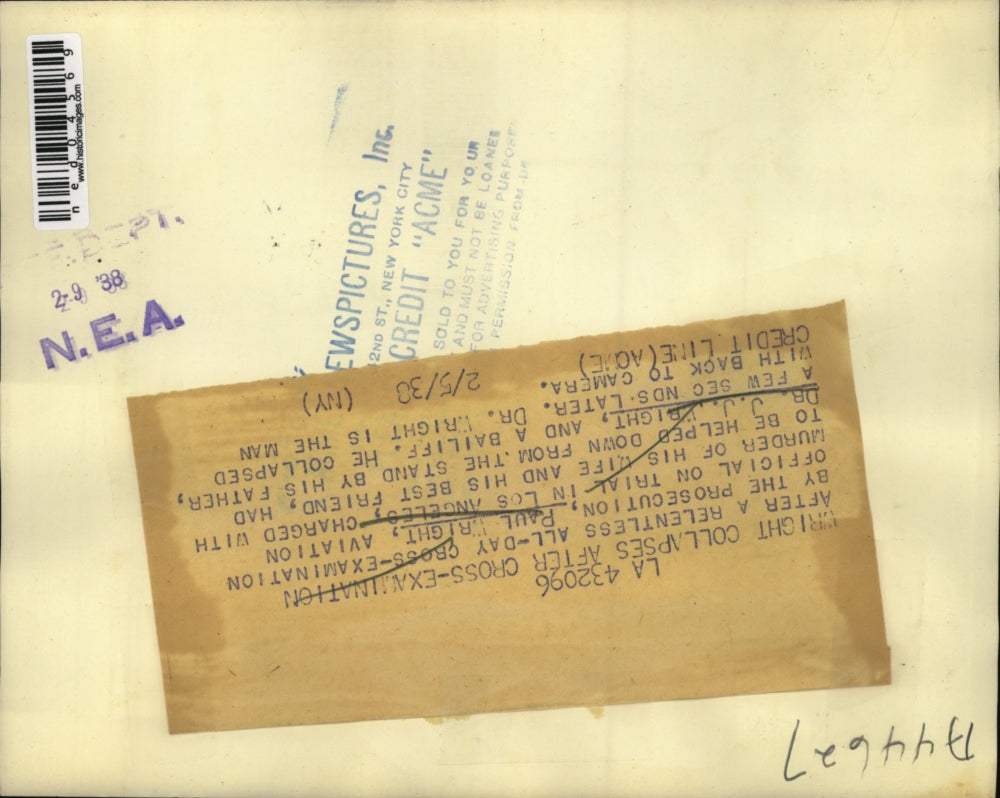 ned04569
www.historicimages.com
DEPT.
2-9 '38
N.E.A.
EWSPICTURES, Inc.
2ND ST., NEW YORK CITY
CREDIT "ACME"
SOLD TO YOU FOR YOUR
AND MUST NOT BE LOANED
FOR ADVERTISING PURPOSE
PERMISSION FROM US
LA 432096
WRIGHT COLLAPSES AFTER CROSS-EXAMINATION
AFTER A RELENTLESS ALL-DAY CROSS-EXAMINATION
BY THE PROSECUTION, PAUL WRIGHT, AVIATION
OFFICIAL ON TRIAL IN LOS ANGELES, CHARGED WITH
MURDER OF HIS WIFE AND HIS BEST FRIEND, HAD
TO BE HELPED DOWN FROM THE STAND BY HIS FATHER,
DR. J.J. WRIGHT, AND A BAILIFF. HE COLLAPSED
A FEW SEC NDS LATER. DR. WRIGHT IS THE MAN
WITH BACK TO CAMERA.
CREDIT LINE (ACME) 2/5/38 (NY)
A44627